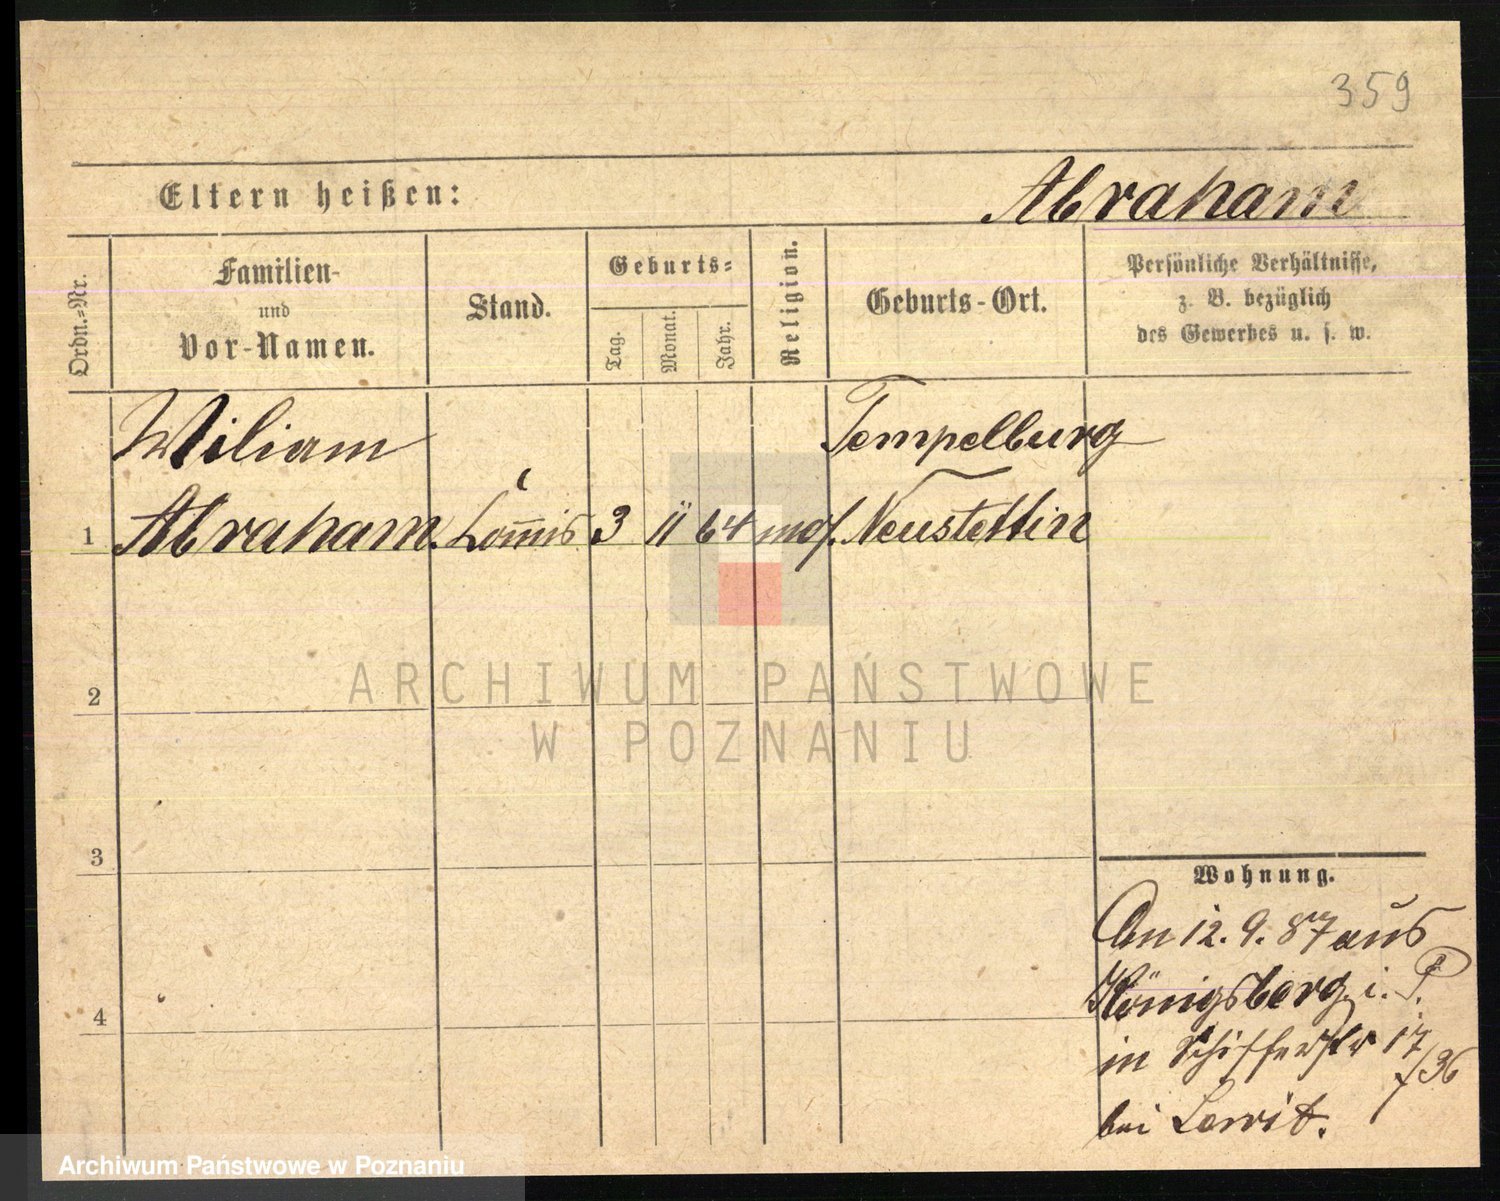 359
Eltern heißen: Abraham
Ordn.-Nr.
Familien-
und
Vor-Namen.
Stand.
Geburts-
Tag.
Monat.
Jahr.
Religion.
Geburts-Ort.
Persönliche Verhältnisse,
z. B. bezüglich
des Gewerbes u. s. w.
Wiliam Tempelburg
1 Abraham. Com̅is 3 11 64 mos. Neustettin
2
3
4
Wohnung.
An 12. 9. 87 aus
Königsberg i. P.
in Schifferstr 17/36
bei Lewit.
ARCHIWUM PAŃSTWOWE
W POZNANIU
Archiwum Państwowe w Poznaniu